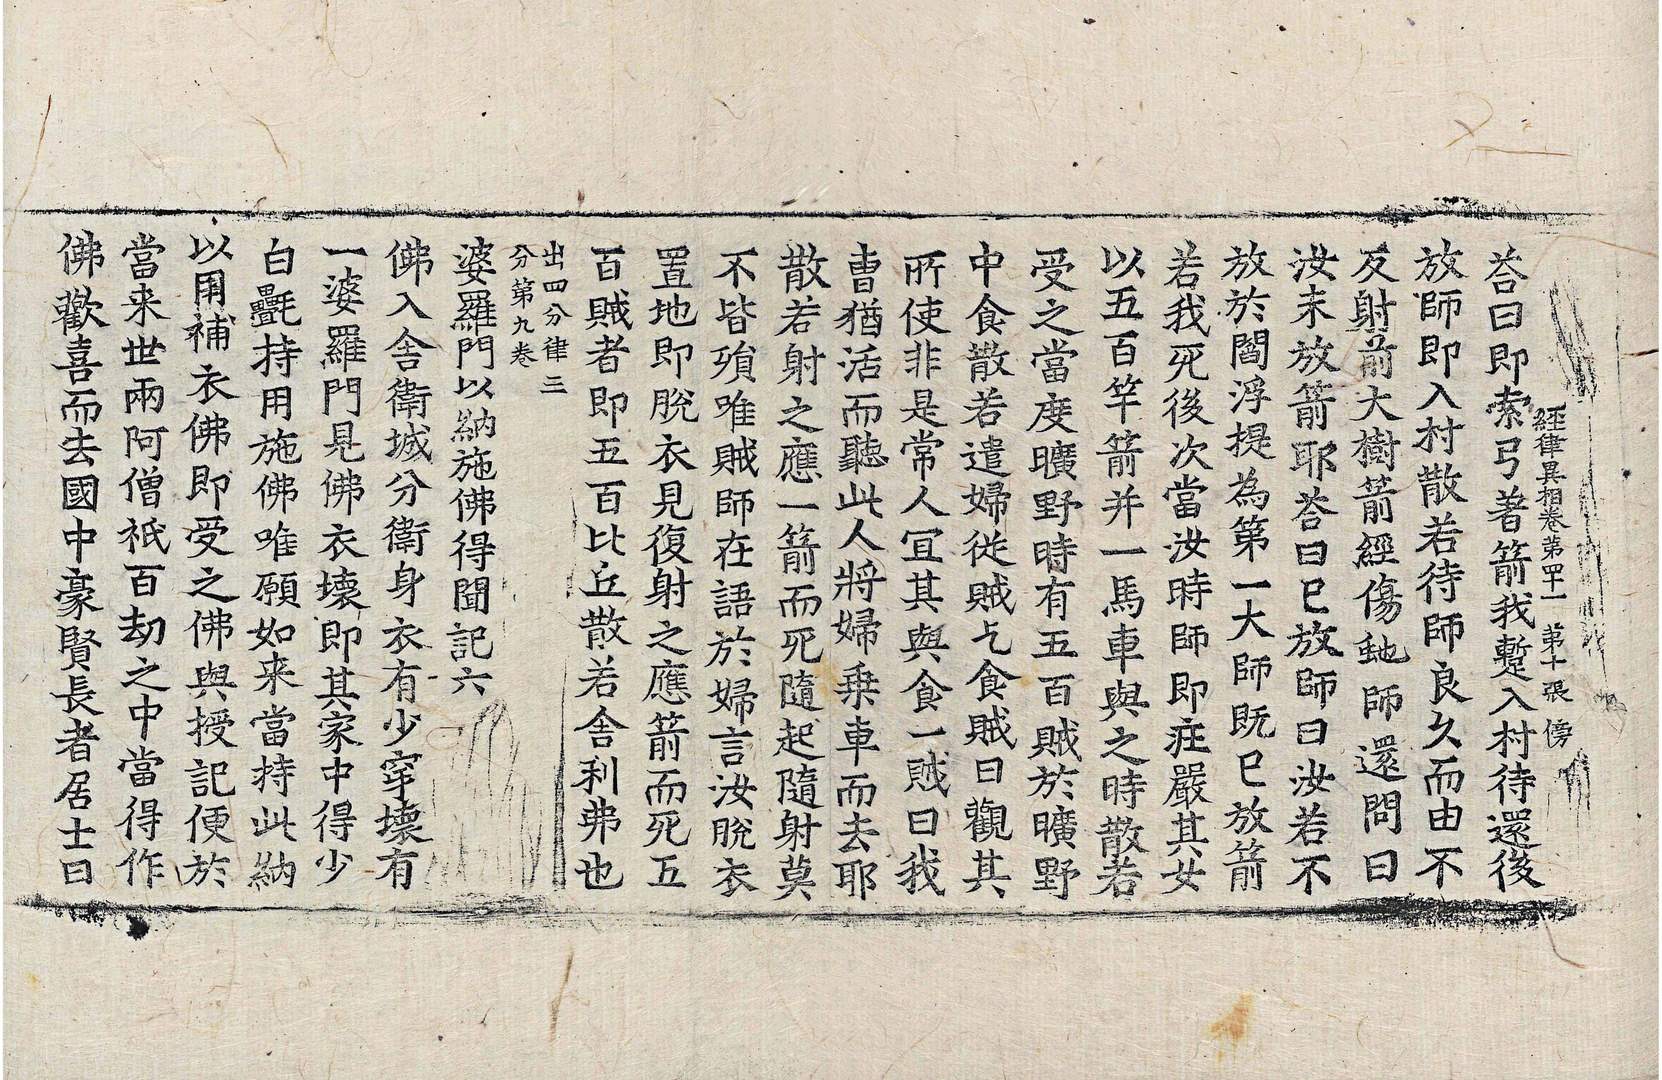 經律異相卷第四十一 第十張 傍
荅曰即索弓著箭我蹔入村待還後
放師即入村散若待師良久而由不
反射前大樹箭經傷虵師還問曰
汝未放箭耶荅曰已放師曰汝若不
放於閻浮提為第一大師既已放箭
若我死後次當汝時師即莊嚴其女
以五百竿箭并一馬車與之時散若
受之當度曠野時有五百賊於曠野
中食散若遣婦從賊乞食賊曰觀其
所使非是常人冝其與食一賊曰我
曹猶活而聽此人將婦乗車而去耶
散若射之應一箭而死隨起隨射莫
不皆殞唯賊師在語於婦言汝脫衣
置地即脫衣見復射之應箭而死五
百賊者即五百比丘散若舍利弗也
出四分律三
分第九卷
婆羅門以納施佛得聞記六
佛入舍衛城分衛身衣有少穿壞有
一婆羅門見佛衣壞即其家中得少
白㲲持用施佛唯願如来當持此納
以用補衣佛即受之佛與授記便於
當来世兩阿僧祇百劫之中當得作
佛歡喜而去國中豪賢長者居士曰